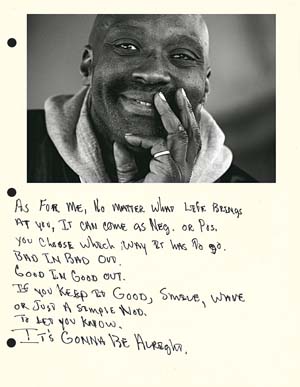 As For Me, No matter What Life Brings
At you, It can come as Neg. or Pos.
You choose which way it has to go.
Bad In Bad Out.
Good In Good Out.
If you Keep it Good, Smile, wave
or Just A Simple Nod.
To Let you Know.
It's Gonna Be Alreght.